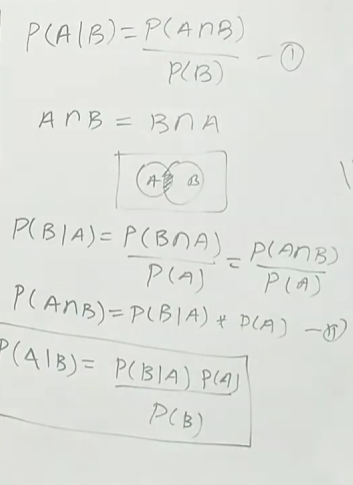 P(A|B) = P(A∩B) / P(B) - ①
A∩B = B∩A
A B
P(B|A) = P(B∩A) / P(A) = P(A∩B) / P(A)
P(A∩B) = P(B|A) * P(A) - ⑪
P(A|B) = P(B|A) P(A) / P(B)